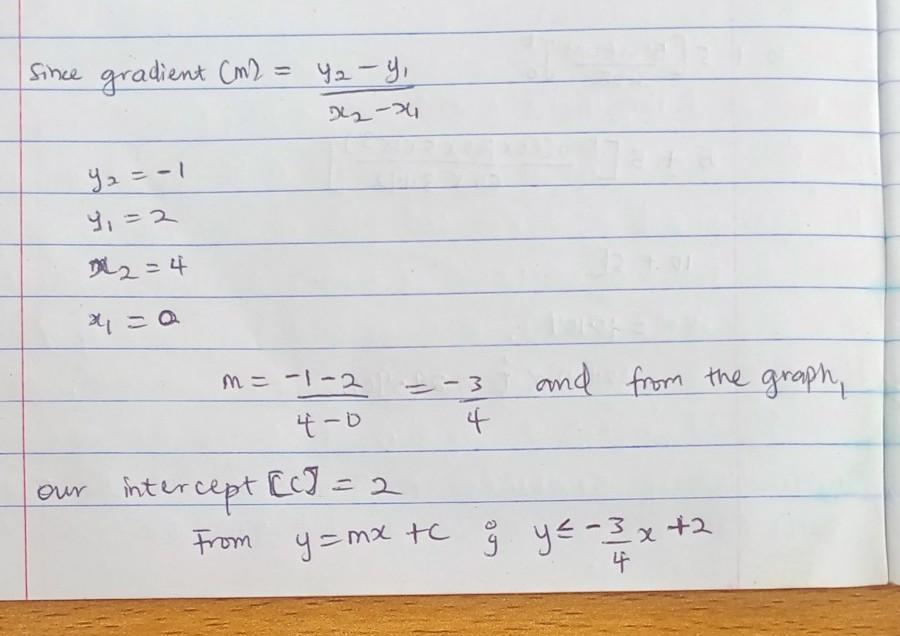 Since gradient (m) = y₂ - y₁ / x₂ - x₁
y₂ = -1
y₁ = 2
x₂ = 4
x₁ = 0
m = -1 - 2 / 4 - 0 = -3/4 and from the graph,
our intercept [C] = 2
From y = mx + c ; y ≤ -3/4 x + 2